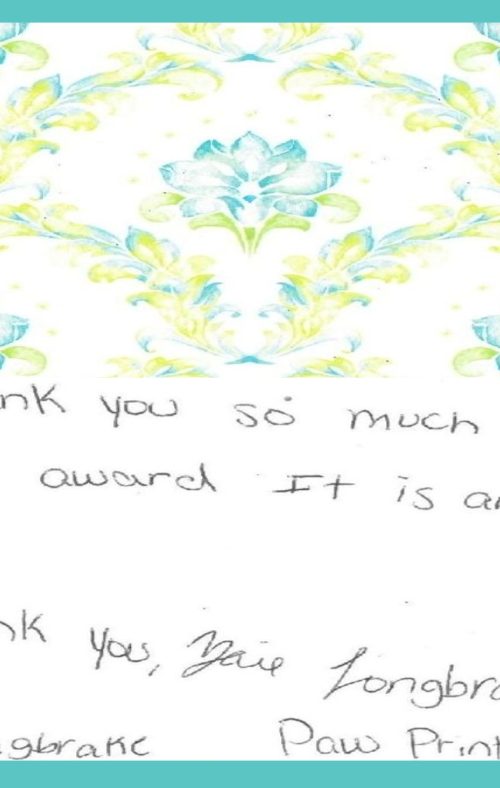 nk you so much
award It is an
nk you, Longbra
gbrake Paw Print